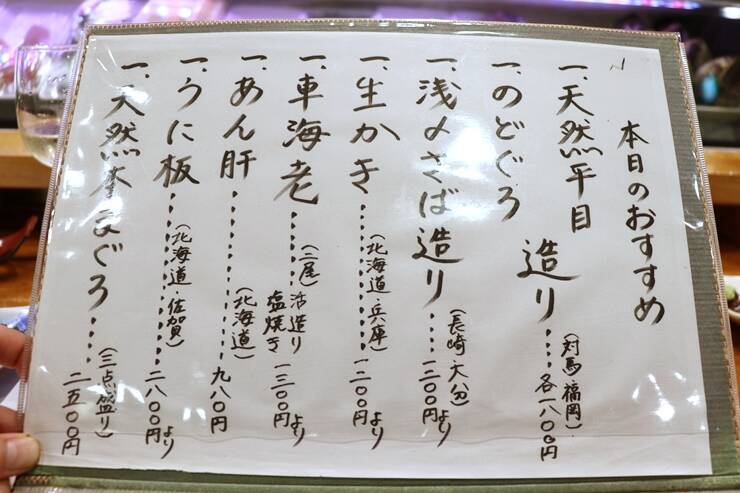 本日のおすすめ
一、天然平目
一、のどぐろ
造り…各一八〇〇円
(対馬・福岡)
一、浅〆さば造り…一二〇〇円
(長崎・大分)
一、生かき…一二〇〇円より
(北海道・兵庫)
一、車海老…一三〇〇円より
(二尾)活造り
塩焼き
一、あん肝…九八〇円
(北海道)
一、うに板…二八〇〇円より
(北海道・佐賀)
一、天然本まぐろ…二五〇〇円
(三点盛り)